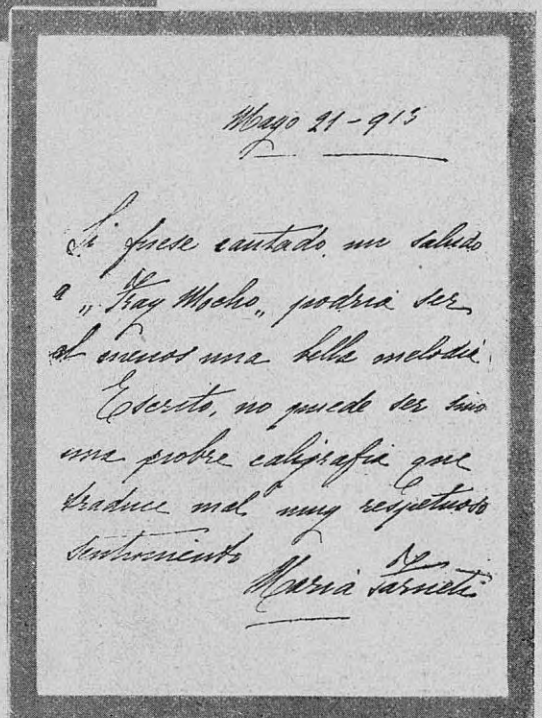 Mayo 21-913
Si fuese cantado, un saludo
a „Fray Mocho„ podria ser
al menos una bella melodia.
Escrito, no puede ser sino
una pobre caligrafia que
traduce mal muy respetuoso
sentimiento
Maria Farneti